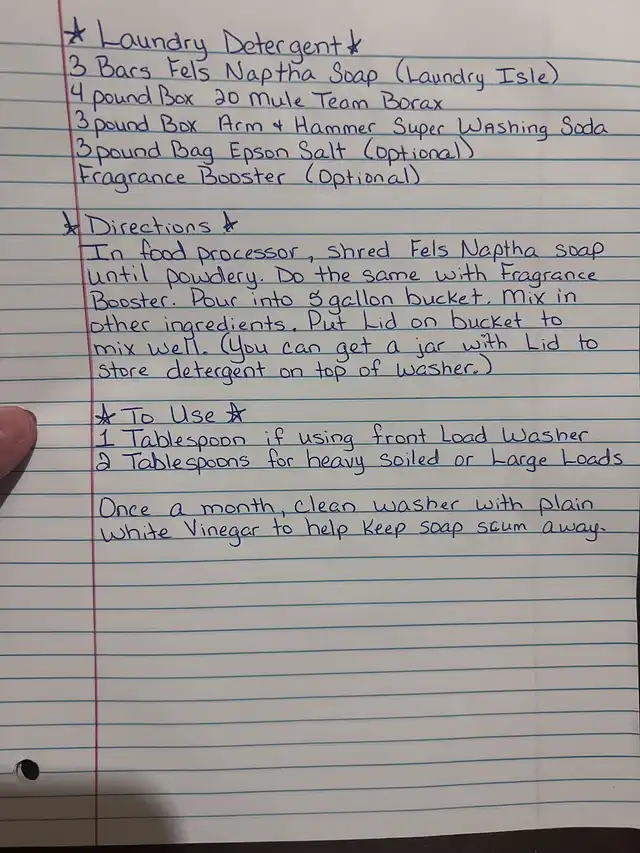 ☆ Laundry Detergent ☆
3 Bars Fels Naptha Soap (Laundry Isle)
4 pound Box 20 Mule Team Borax
3 pound Box Arm & Hammer Super Washing Soda
3 pound Bag Epson Salt (Optional)
Fragrance Booster (Optional)
☆ Directions ☆
In food processor, shred Fels Naptha soap
until powdery. Do the same with Fragrance
Booster. Pour into 5 gallon bucket. Mix in
other ingredients. Put Lid on bucket to
mix well. (You can get a jar with Lid to
store detergent on top of washer.)
☆ To Use ☆
1 Tablespoon if using front Load Washer
2 Tablespoons for heavy soiled or Large Loads
Once a month, clean washer with plain
White Vinegar to help keep soap scum away.